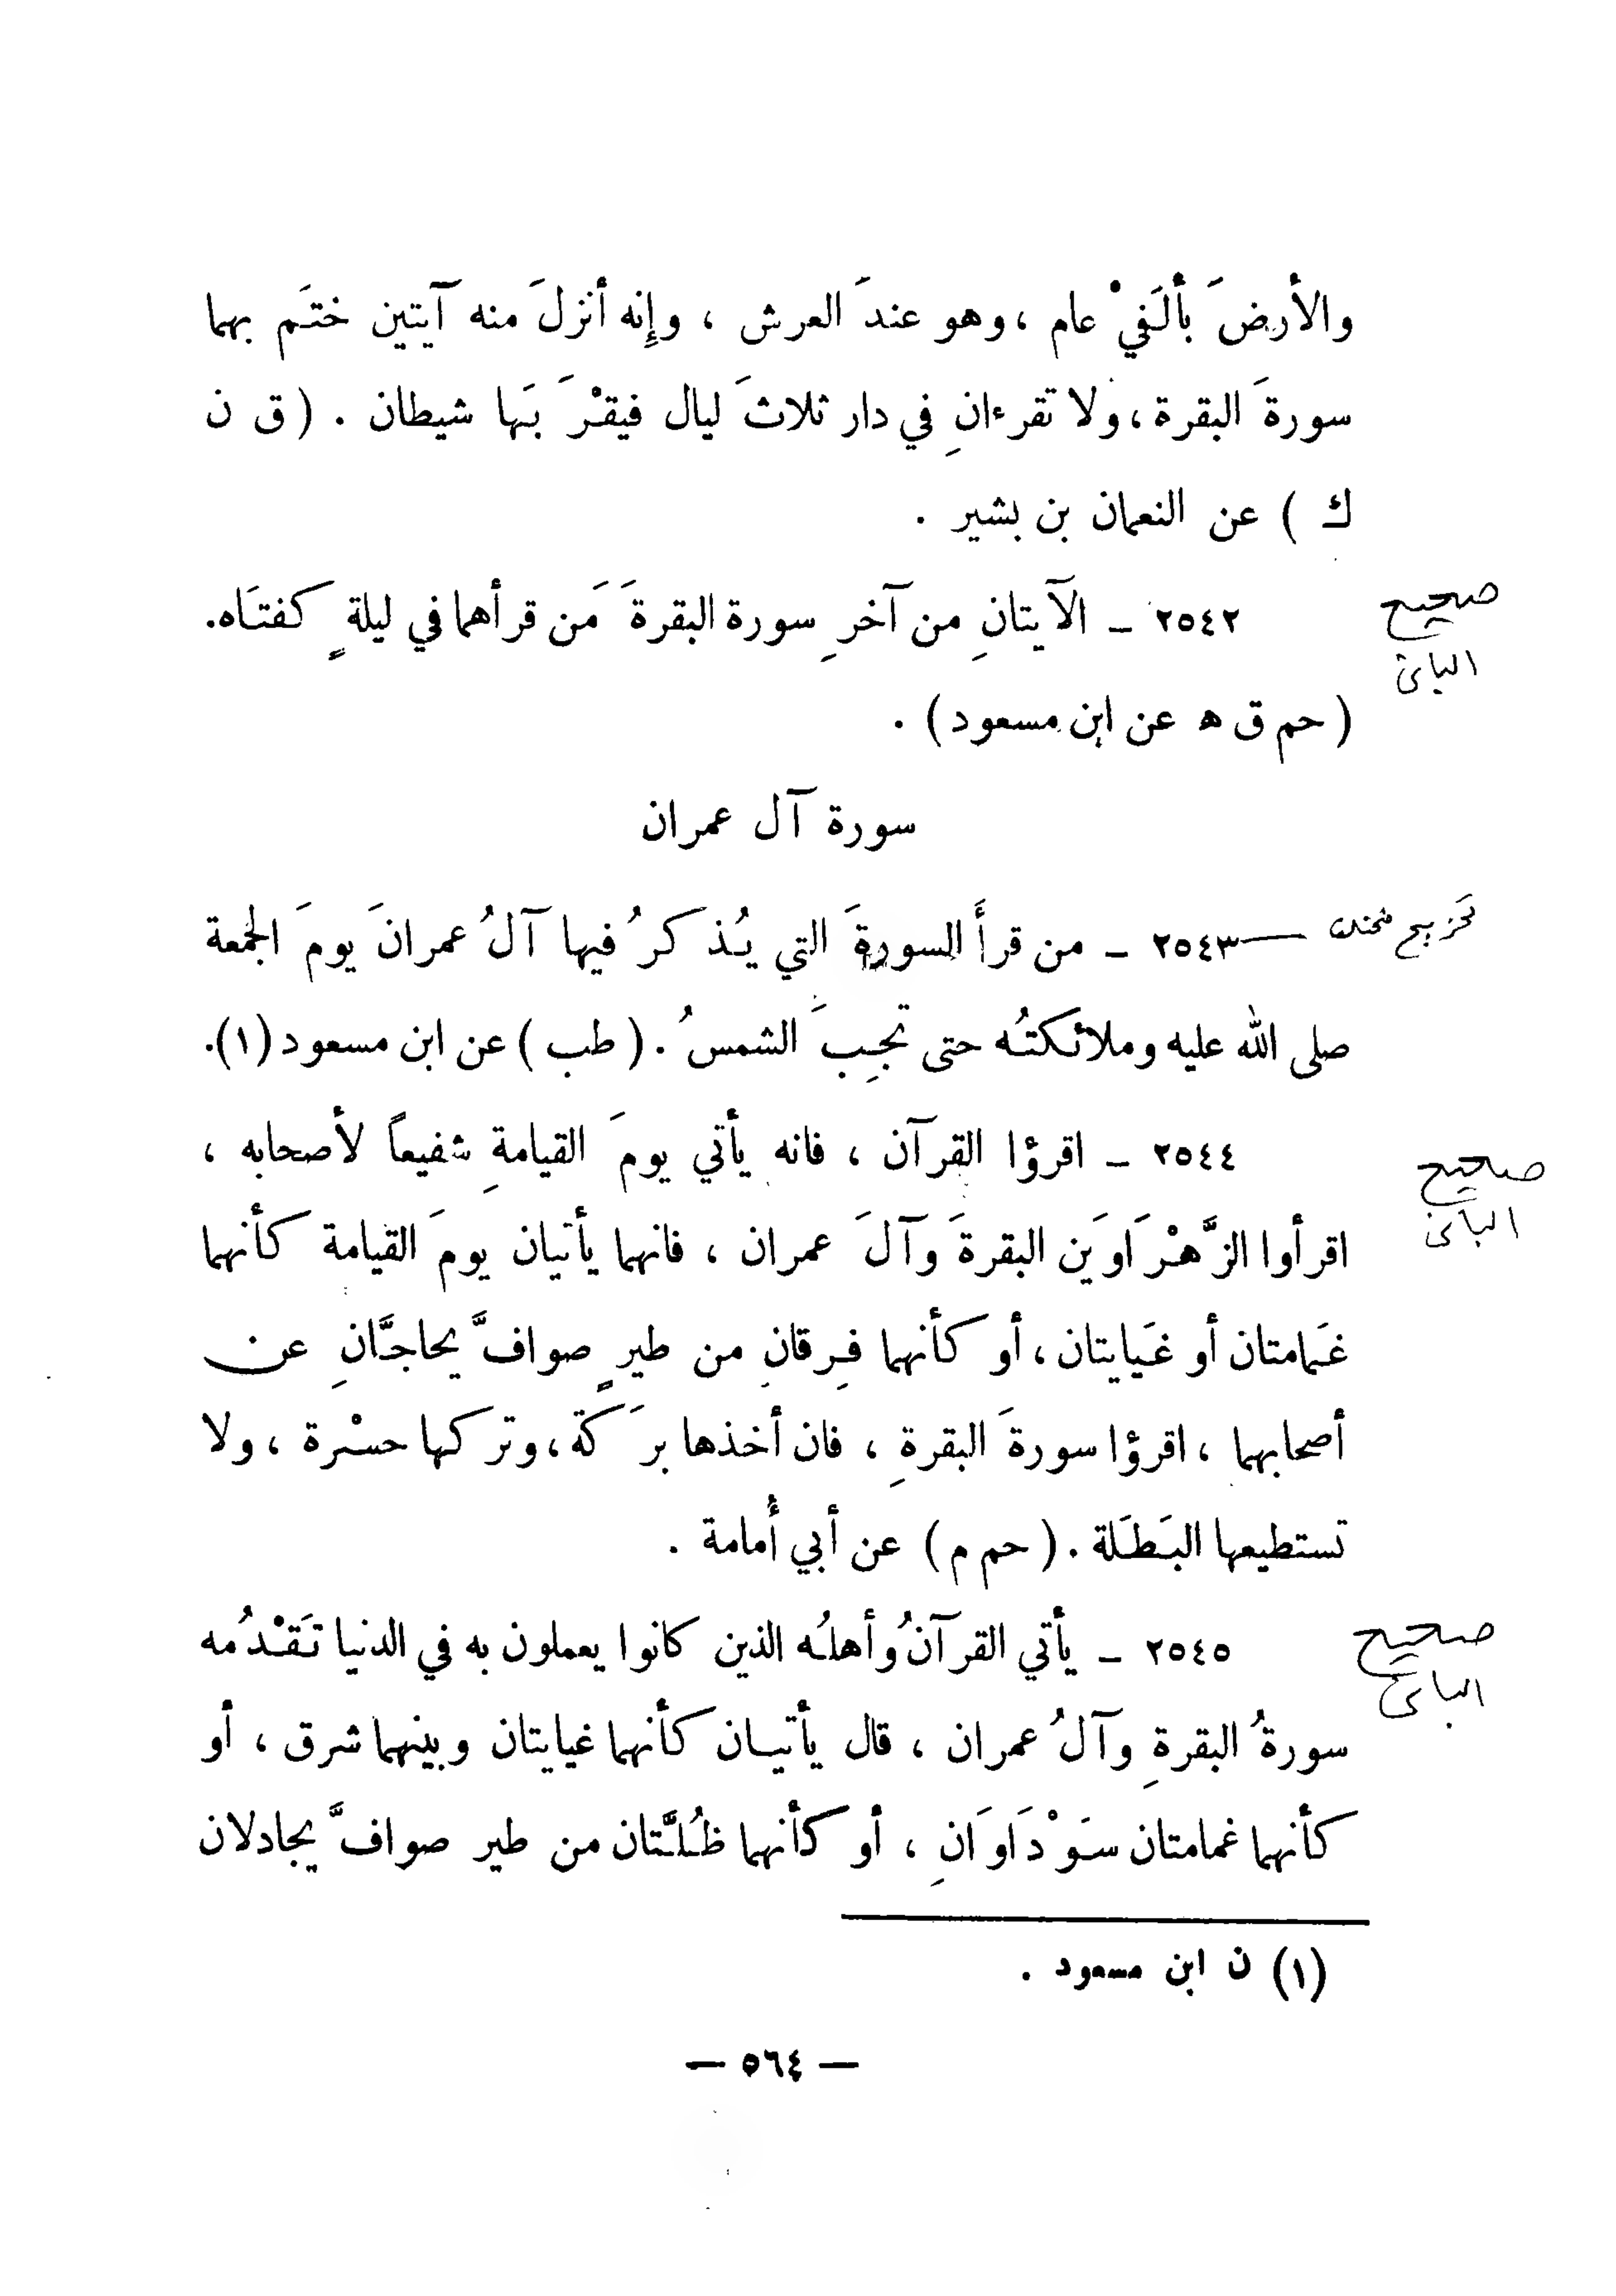 والأرضَ بألَفيْ عام ، وهو عندَ العرش ، وإِنه أنزلَ منه آيتين ختَم بهما
سورةَ البقرة ، ولا تقرءانِ في دار ثلاثَ ليال فيقْرَ بَها شيطان . ( ق ن
ك ) عن النعمان بن بشير .
صحيح
٢٥٤٢ ـ الآيتانِ من آخرِ سورة البقرةَ مَن قرأهما في ليلةٍ كفتَاه .
( حم ق ه عن ابن مسعود ) .
سورة آل عمران
٢٥٤٣ ـ من قرأَ السورةَ التي يُذكرُ فيها آلُ عمرانَ يومَ الجمعة
صلى الله عليه وملائكتُه حتى تجِبَ الشمسُ . ( طب ) عن ابن مسعود (١) .
٢٥٤٤ ـ اقرؤا القرآن ، فانه يأتي يومَ القيامةِ شفيعاً لأصحابه ،
صحيح
اقرأوا الزَّهْرَاوَين البقرةَ وآلَ عمران ، فانهما يأتيان يومَ القيامة كأنهما
غَمامتان أو غَيايتان ، أو كأنهما فِرقان من طيرٍ صوافَّ يحاجَّانِ عن
أصحابهما ، اقرؤا سورةَ البقرةِ ، فان أخذها برَكة ، وتركها حسْرة ، ولا
تستطيعها البَطَلة . ( حم م ) عن أبي أُمامة .
صحيح
٢٥٤٥ ـ يأتي القرآنُ وأهلُه الذين كانوا يعملون به في الدنيا تَقْدُمه
سورةُ البقرةِ وآلُ عمران ، قال يأتيان كأنهما غيايتان وبينهما شرق ، أو
كأنهما غمامتان سَوْدَاوَانِ ، أو كأنهما ظُلَّتان من طير صوافَّ يجادلان
(١) ن ابن مسعود .
— ٥٦٤ —